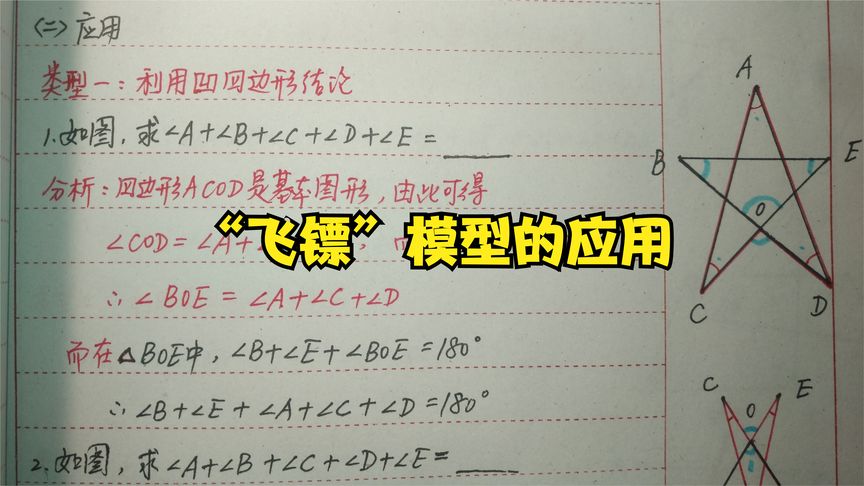 (二) 应用
类型一：利用凹四边形结论
1.如图，求∠A+∠B+∠C+∠D+∠E=____
分析：四边形ACOD是基本图形，由此可得
∠COD=∠A+∠
“飞镖”模型的应用
∴∠BOE=∠A+∠C+∠D
而在△BOE中，∠B+∠E+∠BOE=180°
∴∠B+∠E+∠A+∠C+∠D=180°
2.如图，求∠A+∠B+∠C+∠D+∠E=____
A
B E
O
C D
C E
O